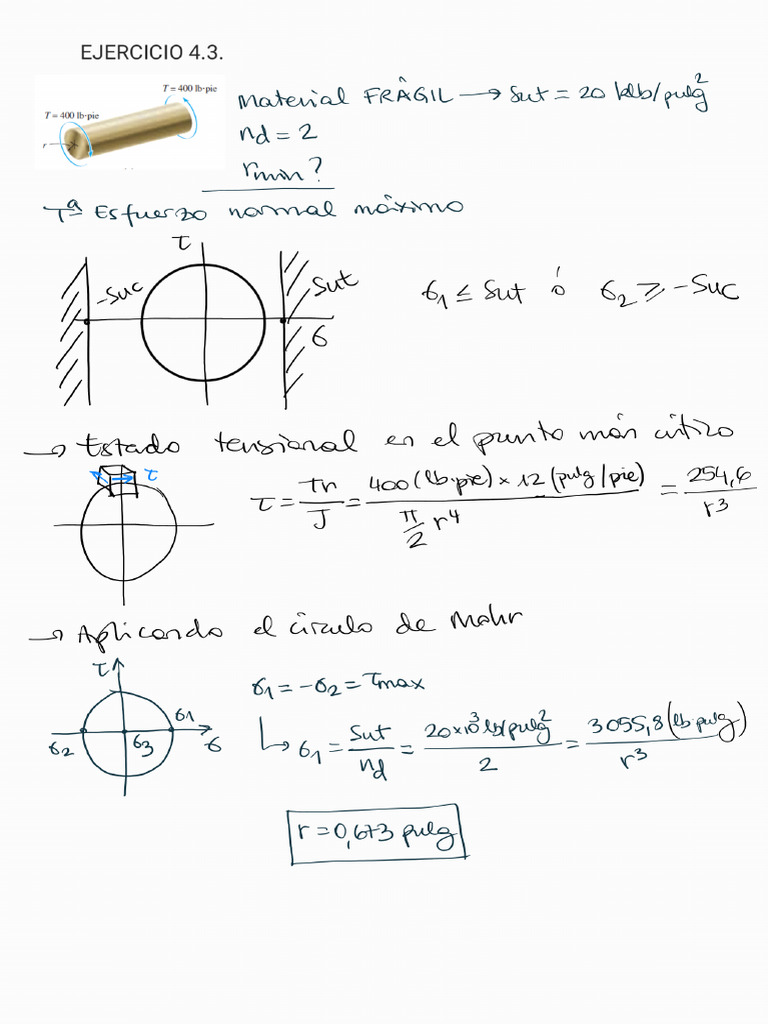 EJERCICIO 4.3.
T = 400 lb·pie
T = 400 lb·pie
r
Material FRÂGIL → Sut = 20 klb/pulg²
nd = 2
rmin?
Tª Esfuerzo normal máximo
τ
-Suc
Sut
σ
σ1 ≤ Sut ó σ2 ≥ -Suc
→ Estado tensional en el punto más crítico
τ
τ = Tr/J = 400 (lb·pie) × 12 (pulg/pie) / π/2 r⁴ = 254,6/r³
→ Aplicando el círculo de Mohr
τ
σ1
σ2
σ3
σ
σ1 = -σ2 = τmax
↳ σ1 = Sut/nd = 20×10³ lb/pulg²/2 = 3055,8 (lb·pulg)/r³
r = 0,673 pulg